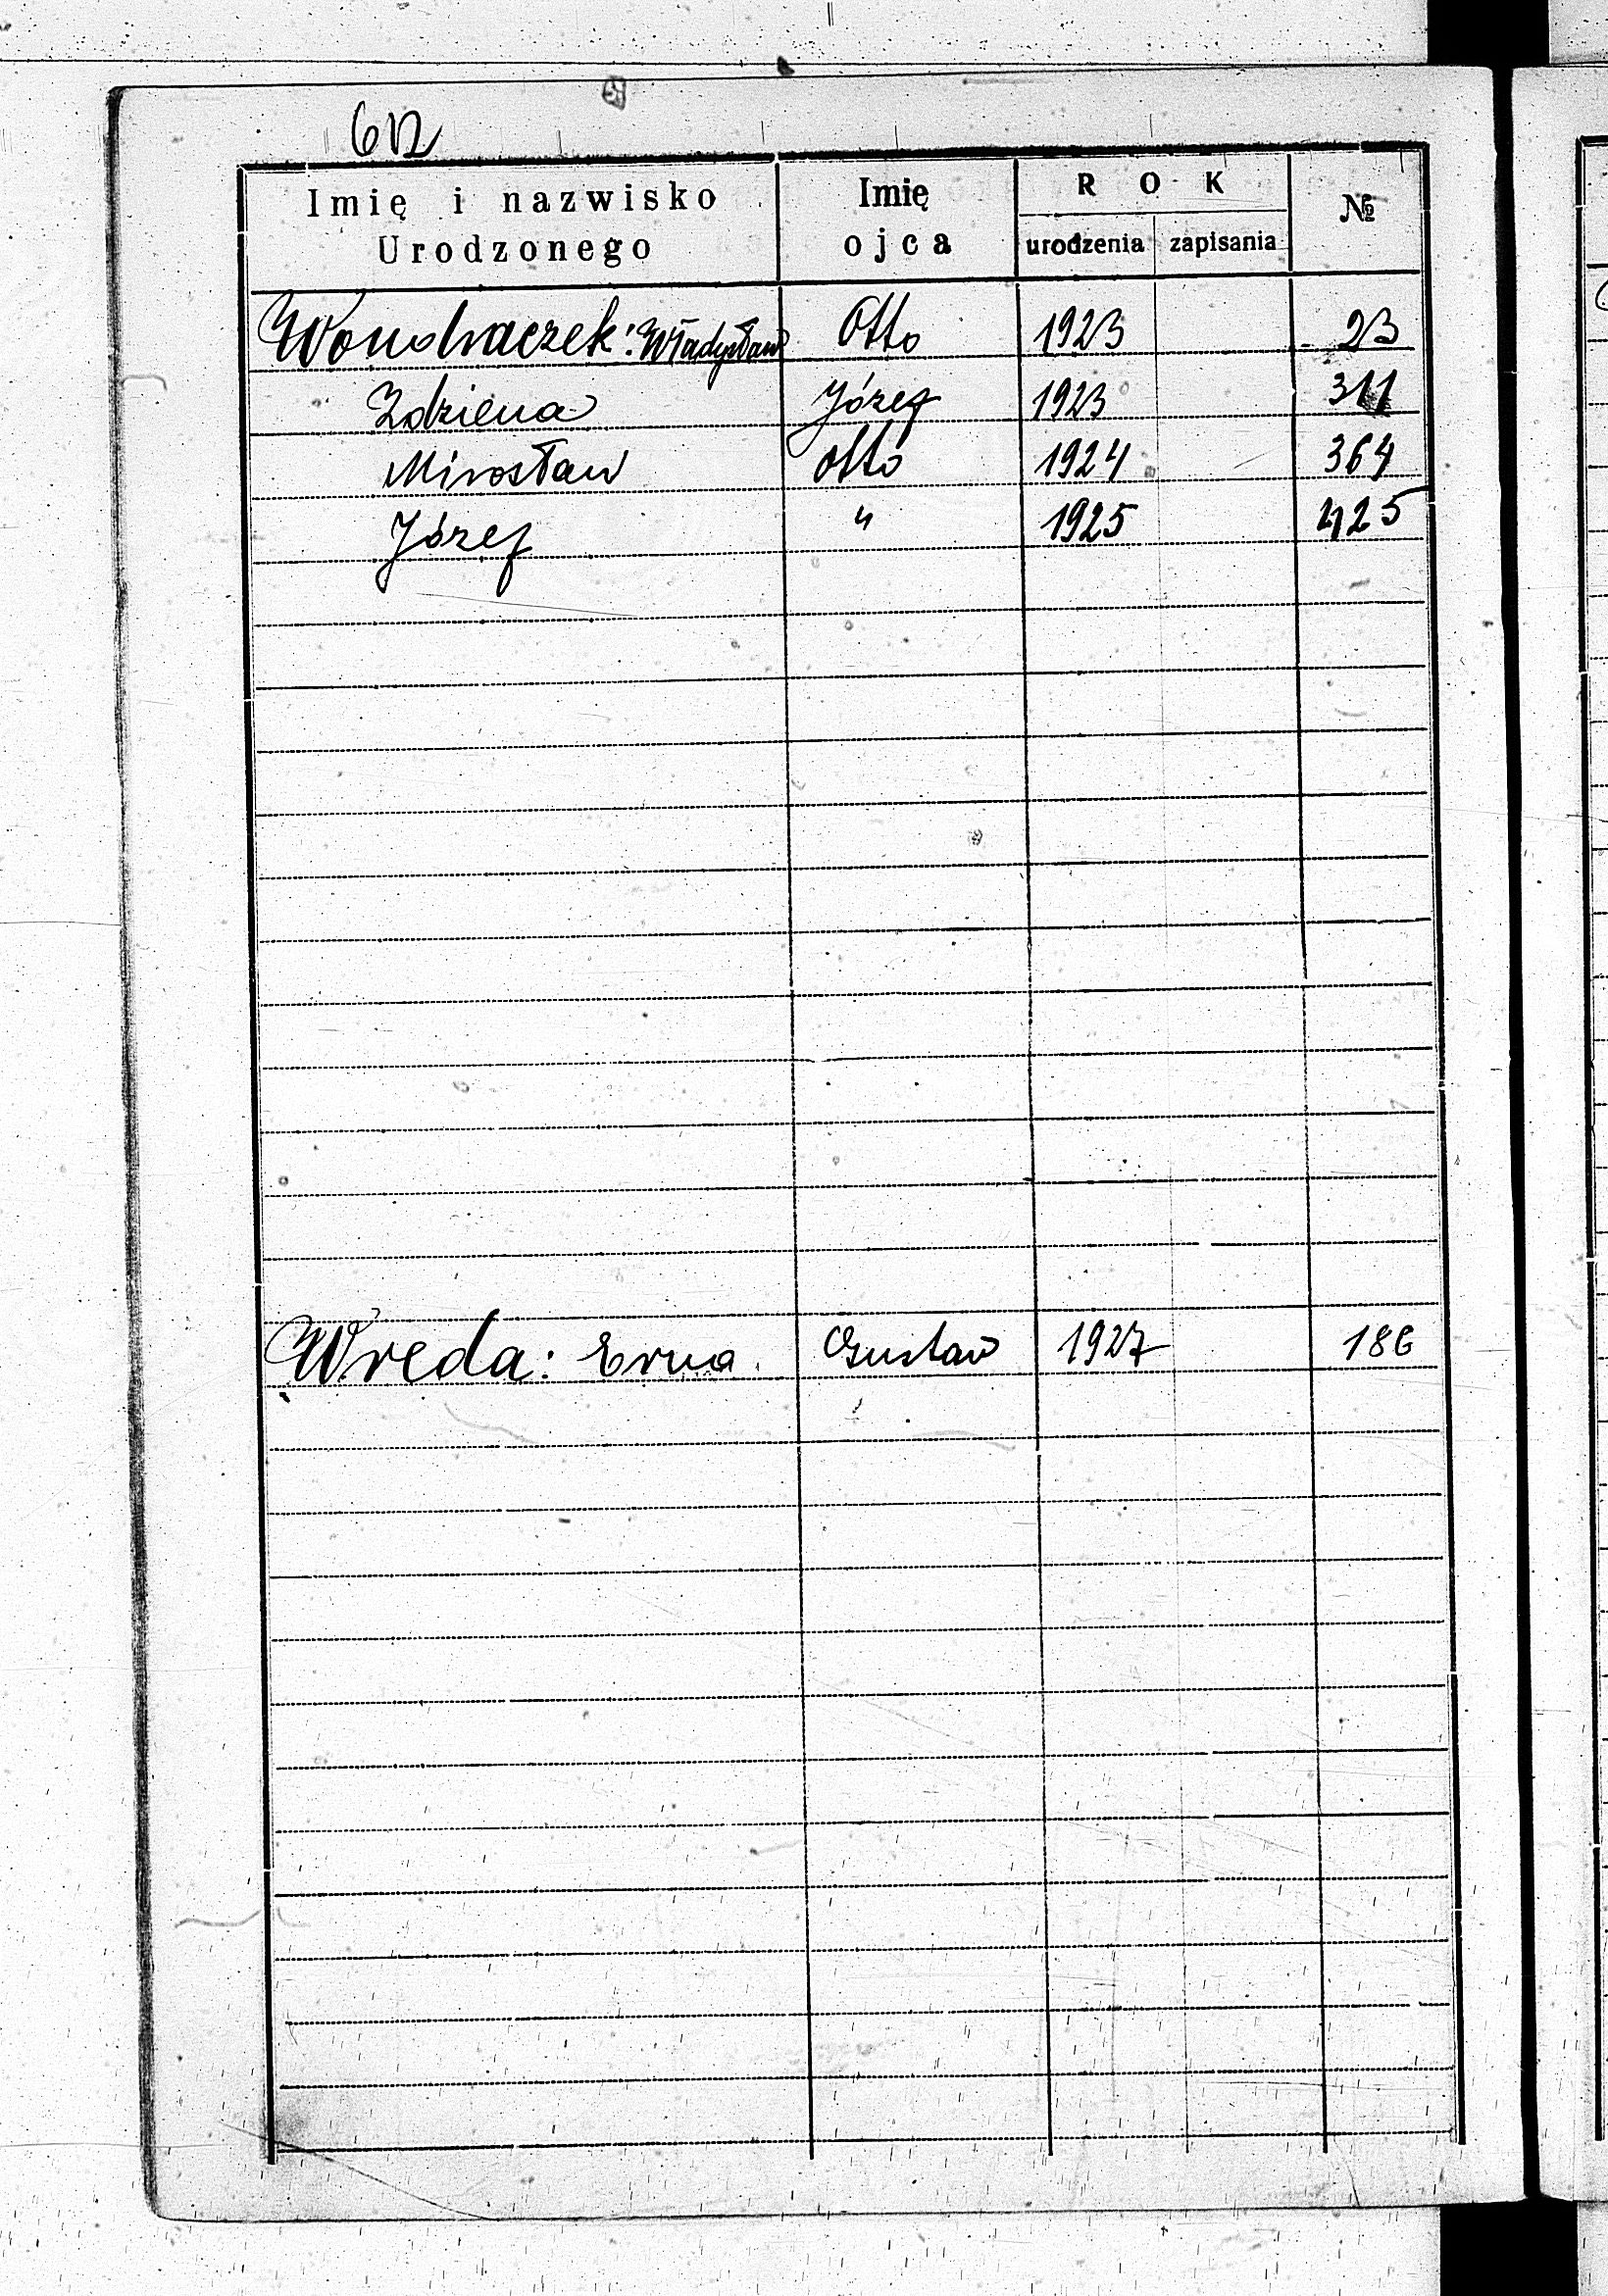 612
Imię i nazwisko Urodzonego | Imię ojca | ROK urodzenia | zapisania | №
Wondraczek: Władysław | Otto | 1923 | | 23
Zdziena | Józef | 1923 | | 311
Mirosław | Otto | 1924 | | 364
Józef | " | 1925 | | 425
Wreda: Erna. | Gustaw | 1927 | | 186